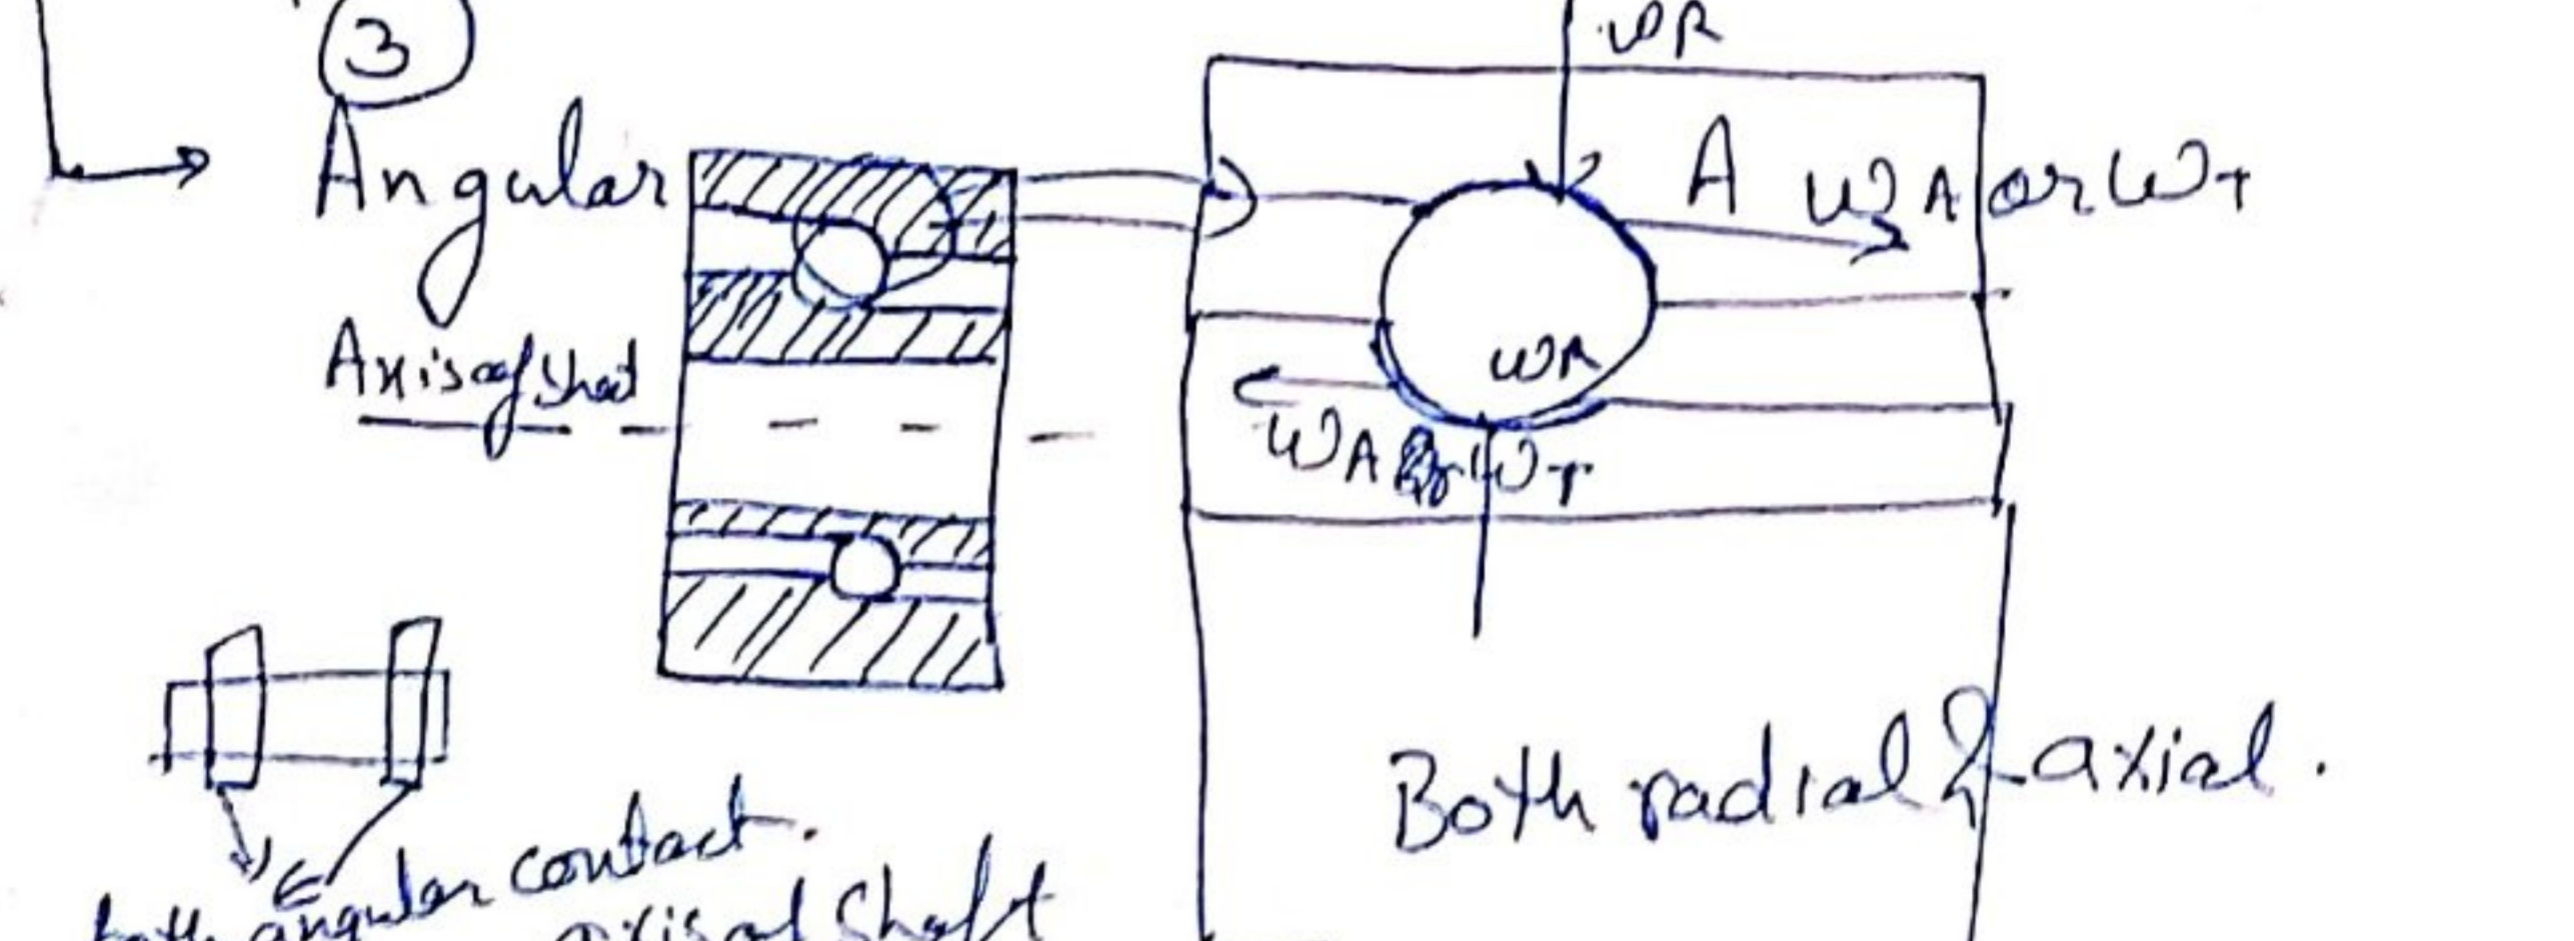 3
WR
Angular
A WA or WT
Axis of Shaft
WR
WA or WT
Both radial & axial.
both angular contact.
axis of shaft